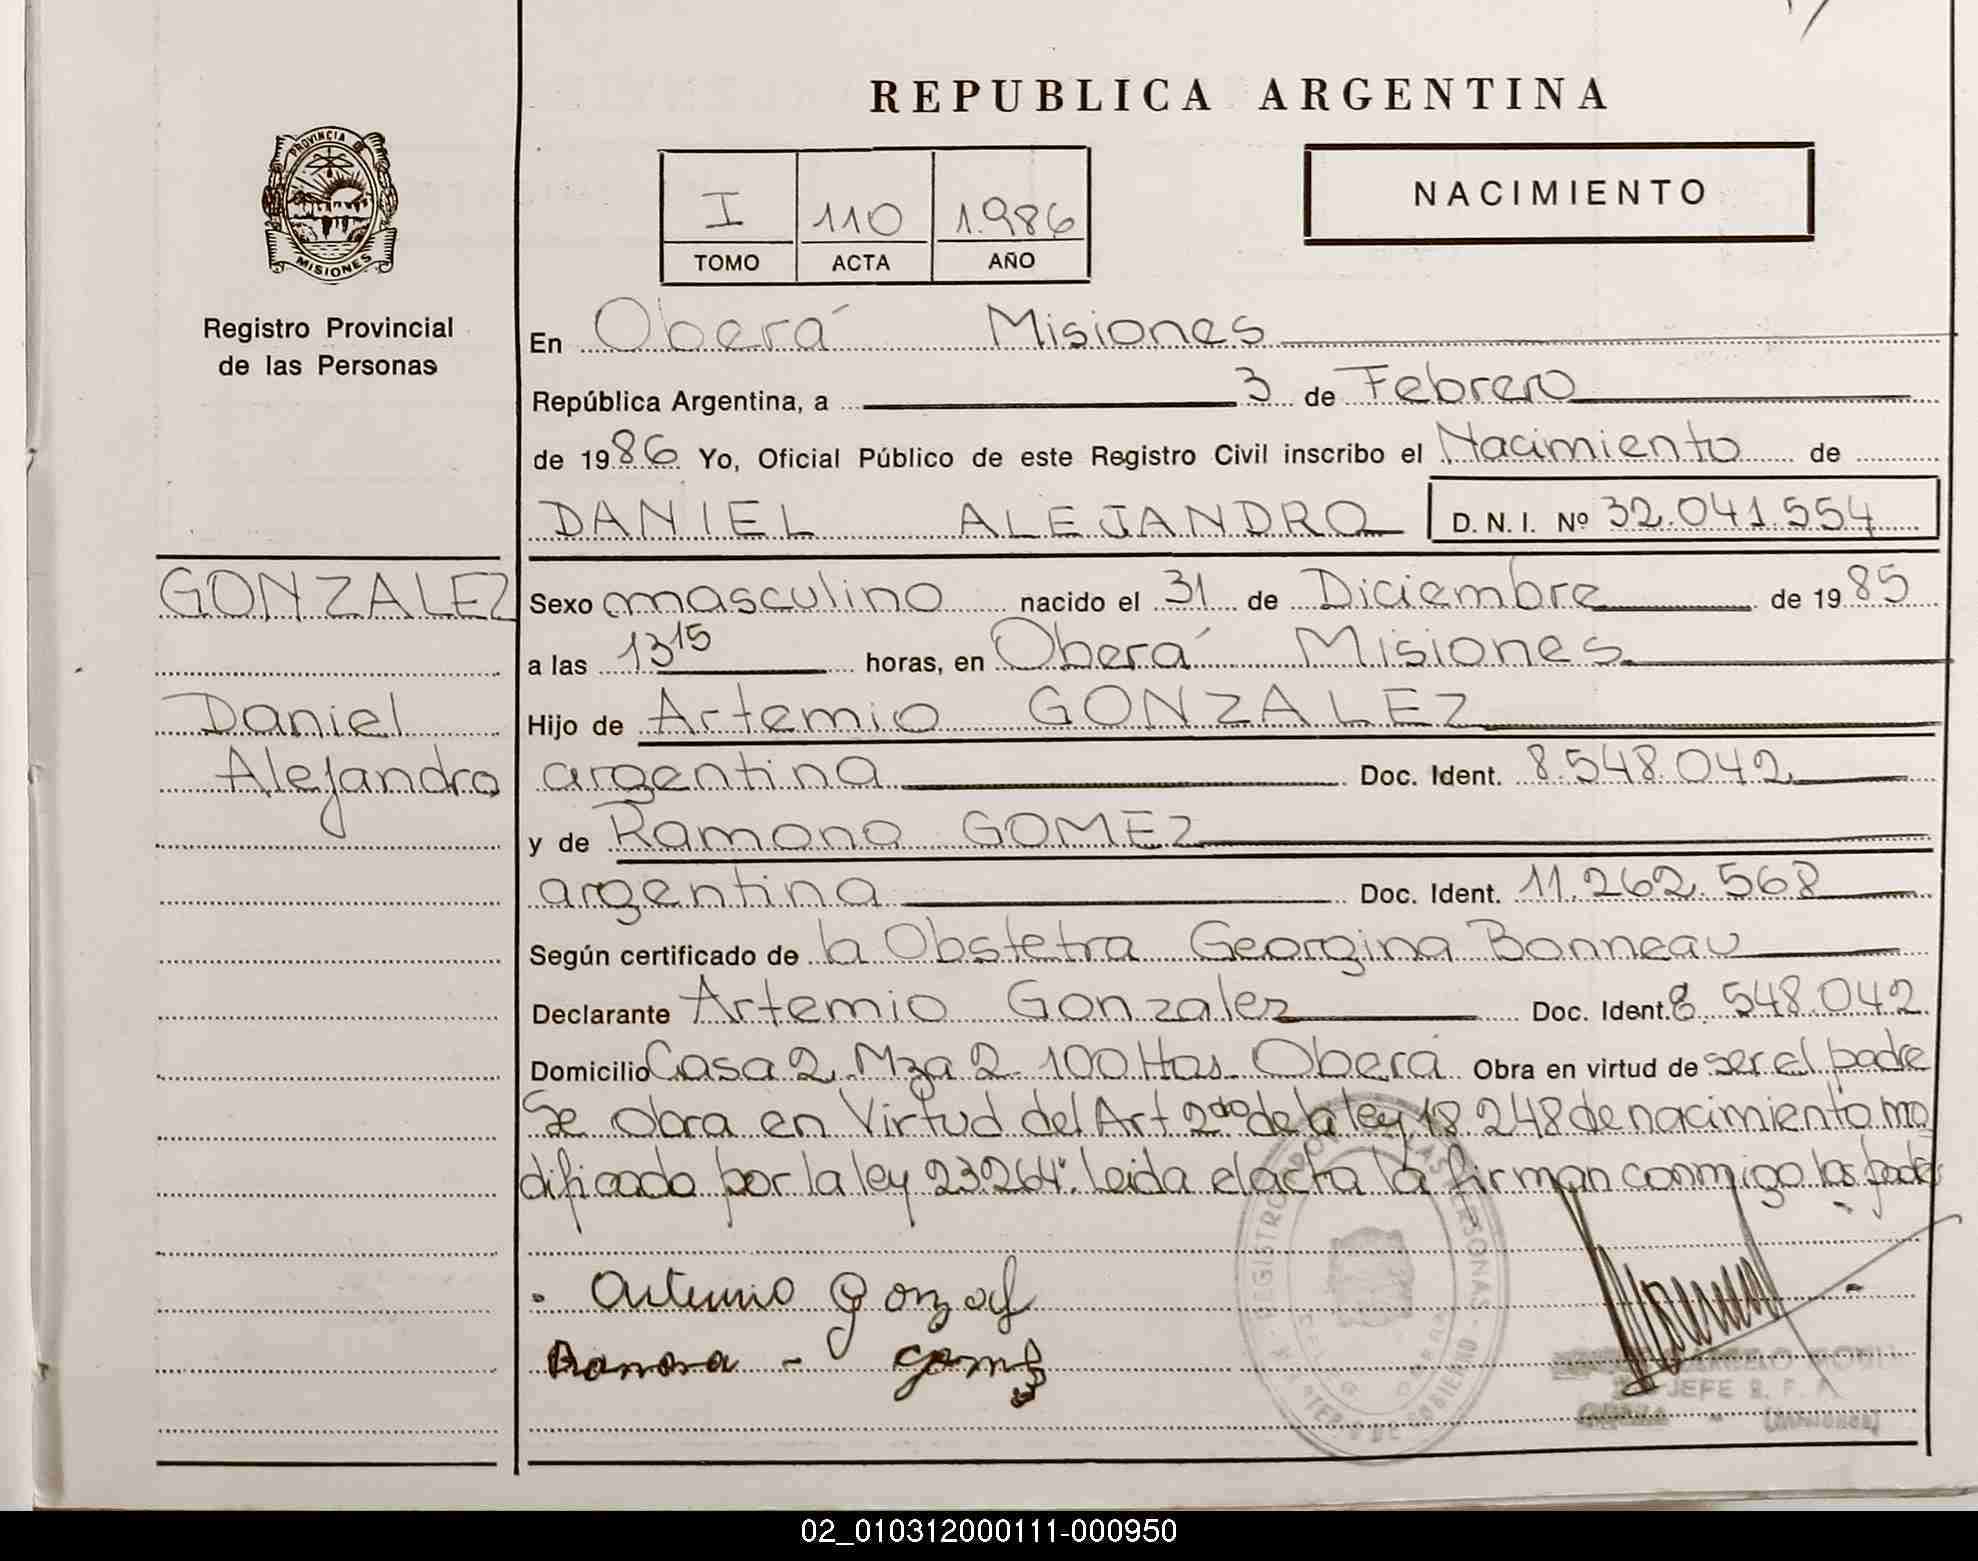 REPUBLICA ARGENTINA
PROVINCIA DE
MISIONES
Registro Provincial
de las Personas
I 110 1.986
TOMO ACTA AÑO
NACIMIENTO
En Oberá Misiones
República Argentina, a 3 de Febrero
de 1986 Yo, Oficial Público de este Registro Civil inscribo el Nacimiento de
DANIEL ALEJANDRO D. N. I. Nº 32.041.554
GONZALEZ
Daniel
Alejandro
Sexo masculino nacido el 31 de Diciembre de 1985
a las 13 15 horas, en Oberá Misiones
Hijo de Artemio GONZALEZ
argentina Doc. Ident. 8.548.042
y de Ramona GOMEZ
argentina Doc. Ident. 11.262.568
Según certificado de la Obstetra Georgina Bonneau
Declarante Artemio Gonzalez Doc. Ident. 8.548.042
Domicilio Casa 2 Mza 2 100 Has. Oberá Obra en virtud de ser el padre
Se obra en Virtud del Art 2do de la ley 18.248 de nacimiento mo
dificado por la ley 23.264. Leida el acta la firman conmigo los padres
Artemio Gonzal
Ramona - Gomez
JEFE R. P. P.
(Misiones)
02_010312000111-000950